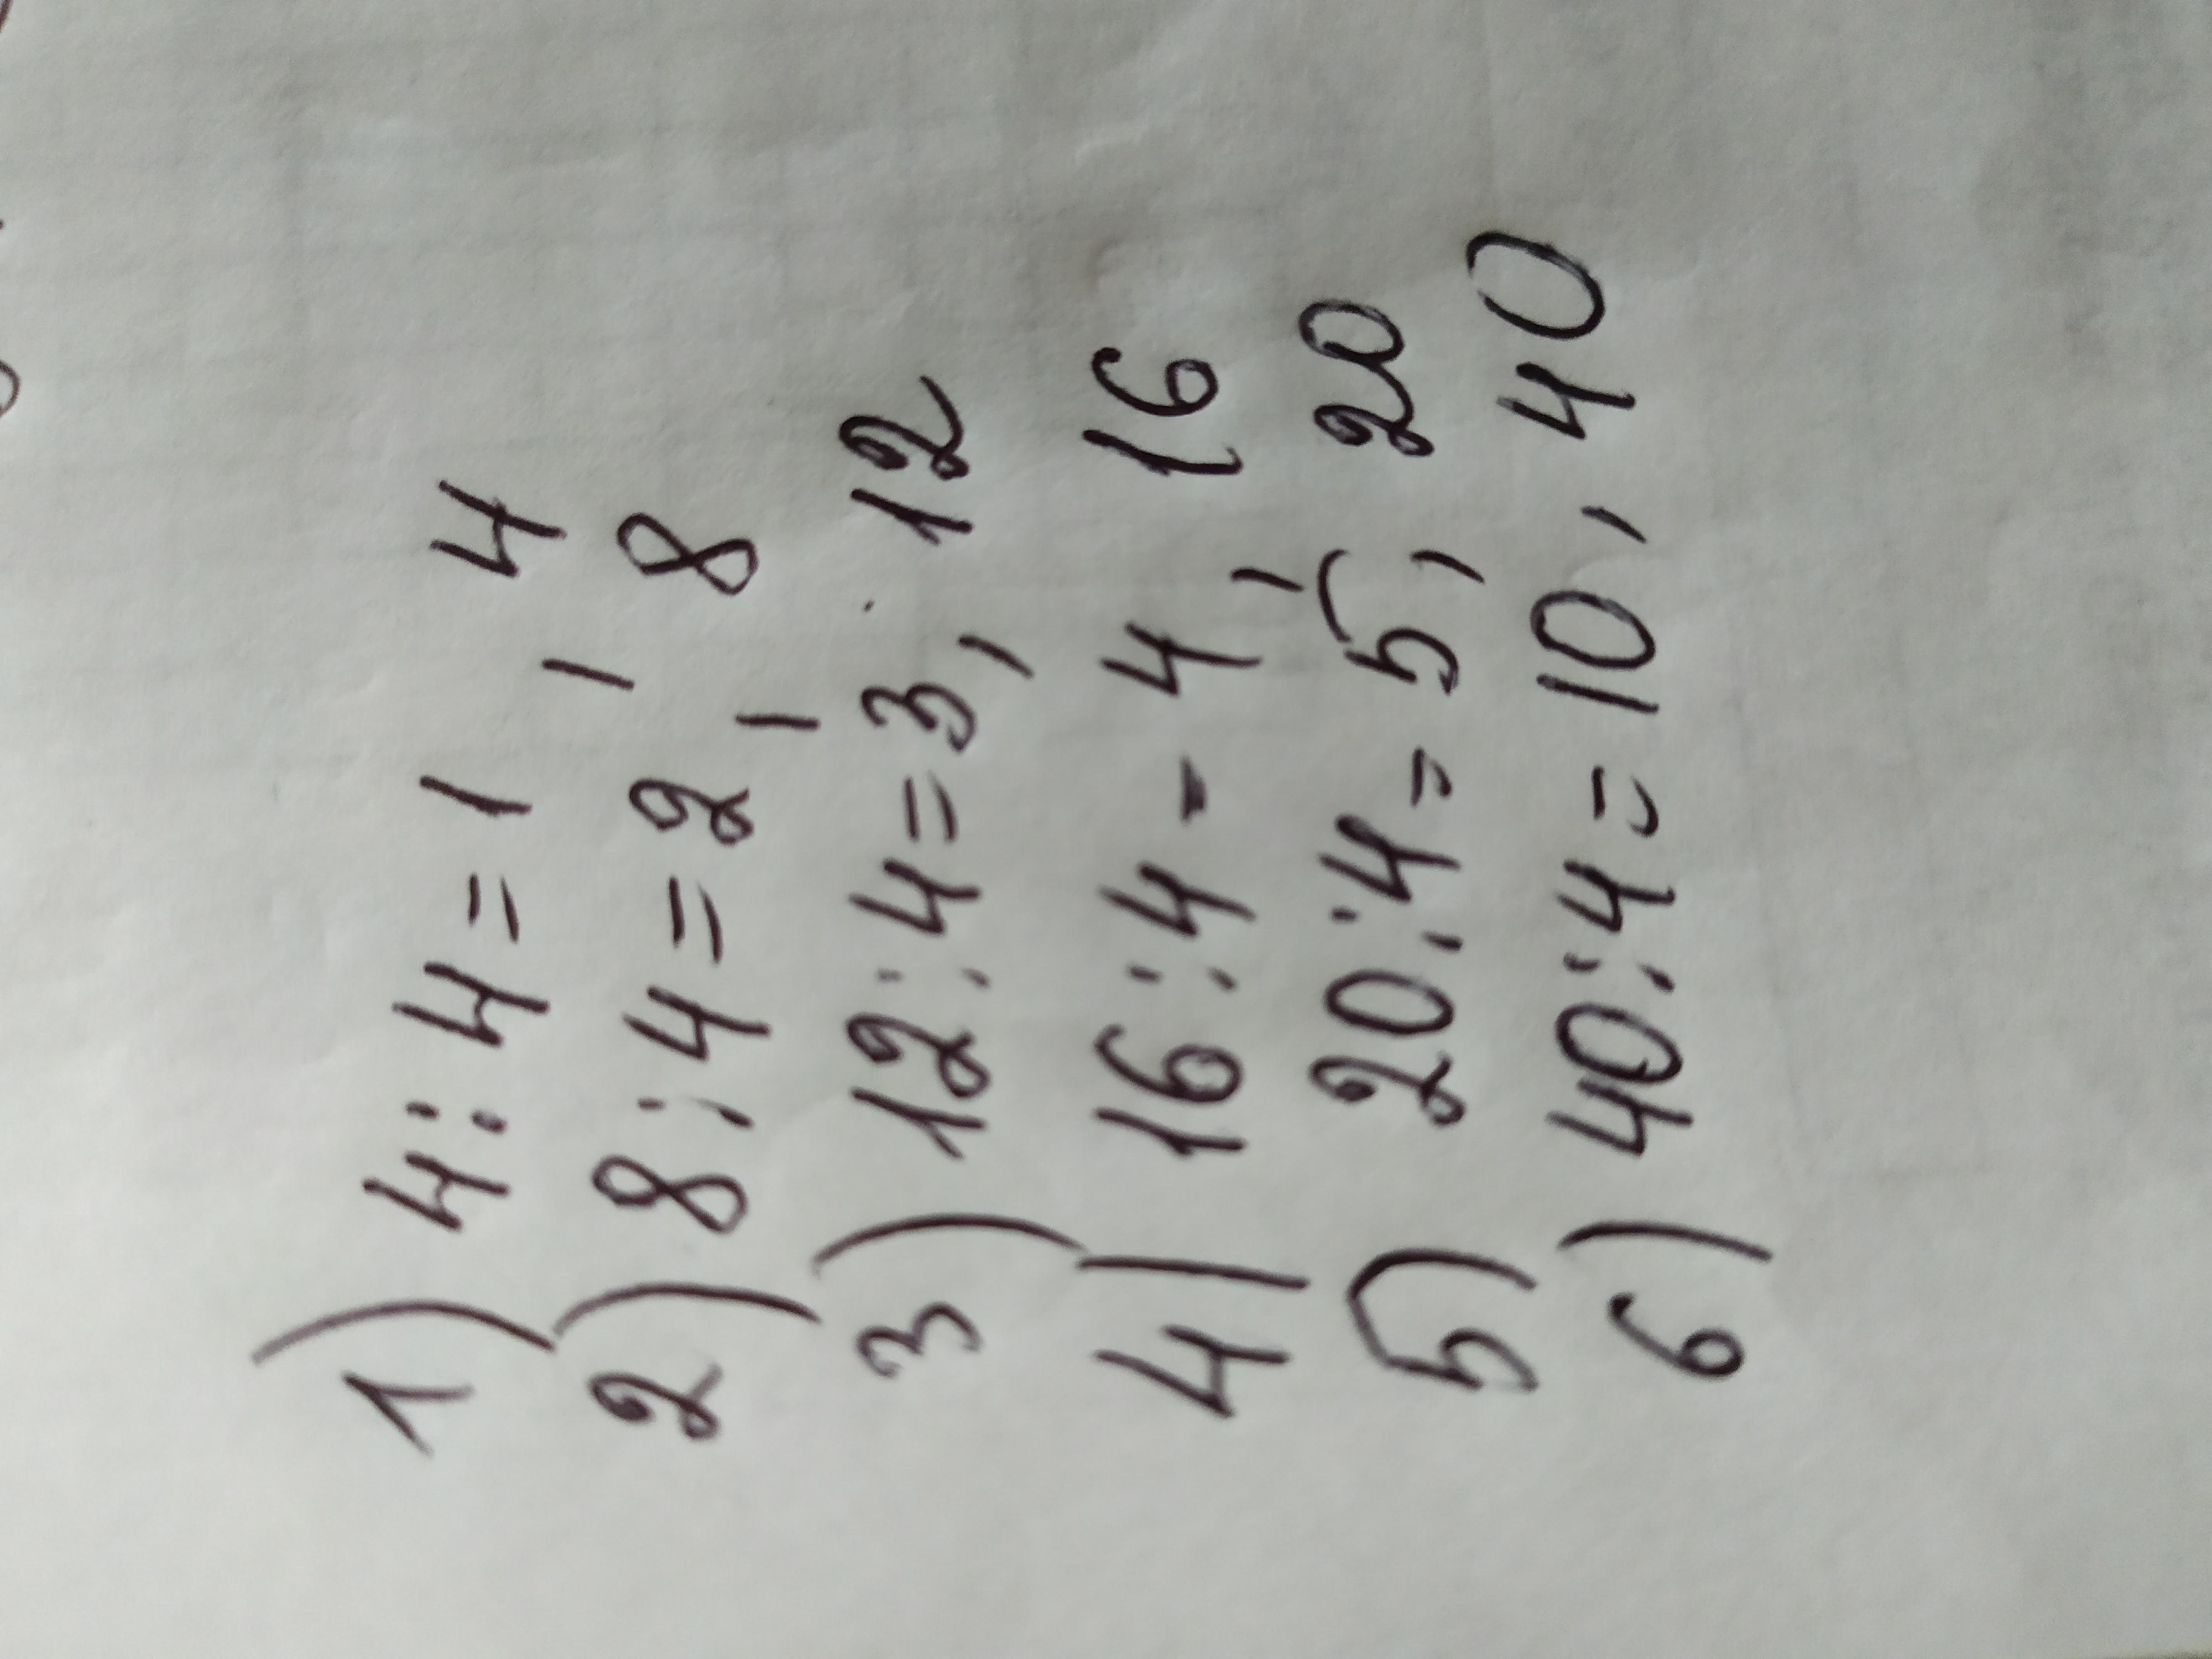 1) 4:4=1, 4
2) 8:4=2, 8
3) 12:4=3, 12
4) 16:4-4, 16
5) 20:4=5, 20
6) 40:4=10, 40